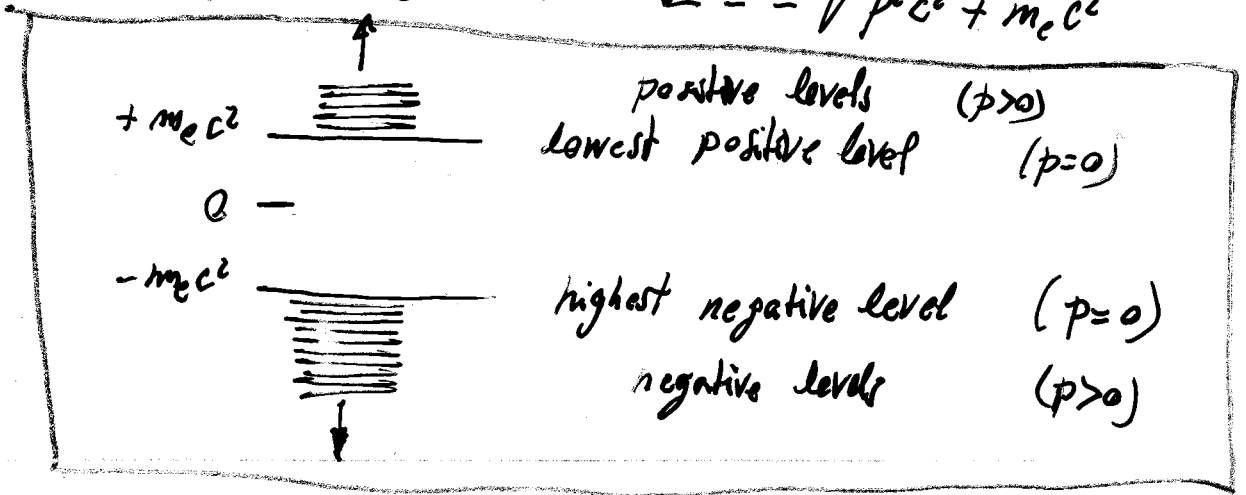 √ p²c² + mₑc²
positive levels (p>0)
+ mₑc²
lowest positive level (p=0)
0 —
- mₑc²
highest negative level (p=0)
negative levels (p>0)